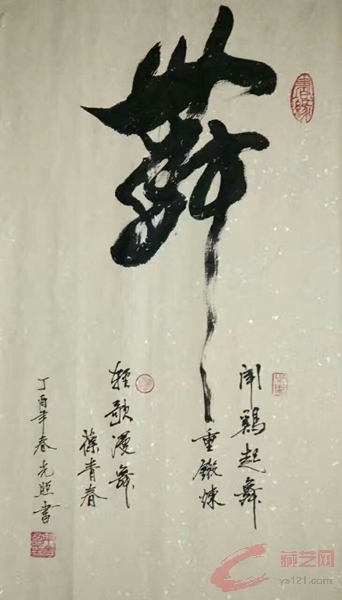 舞
聞鷄起舞
重鍛煉
輕歌漫舞
葆青春
丁酉年春光照書
藏艺网
ya121.com